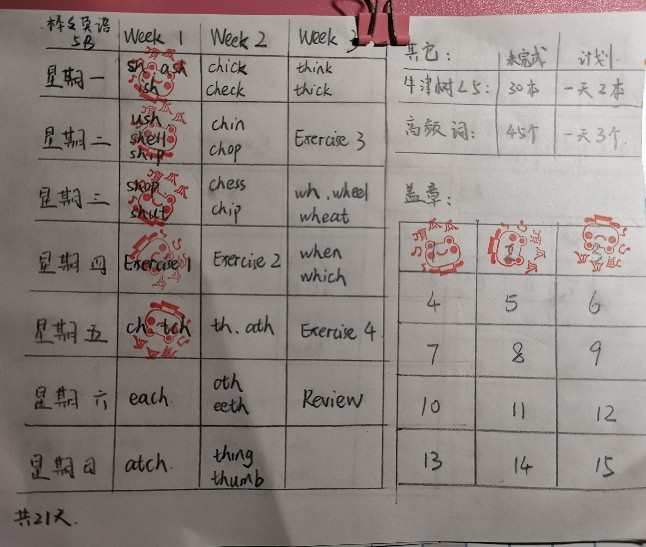 棒棒英语 5B Week 1 Week 2 Week 3
星期一 sh ash ish chick check think thick
星期二 ush. shell ship chin chop Exercise 3
星期三 shop shut chess chip wh. wheel wheat
星期四 Exercise 1 Exercise 2 when which
星期五 ch tch th. ath Exercise 4
星期六 each oth eeth Review
星期日 atch. thing thumb
共21天.
其它: 未完成 计划
牛津树L5: 30本 一天2本
高频词: 45个 一天3个.
盖章:
顶瓜瓜 顶瓜瓜 顶瓜瓜
4 5 6
7 8 9
10 11 12
13 14 15